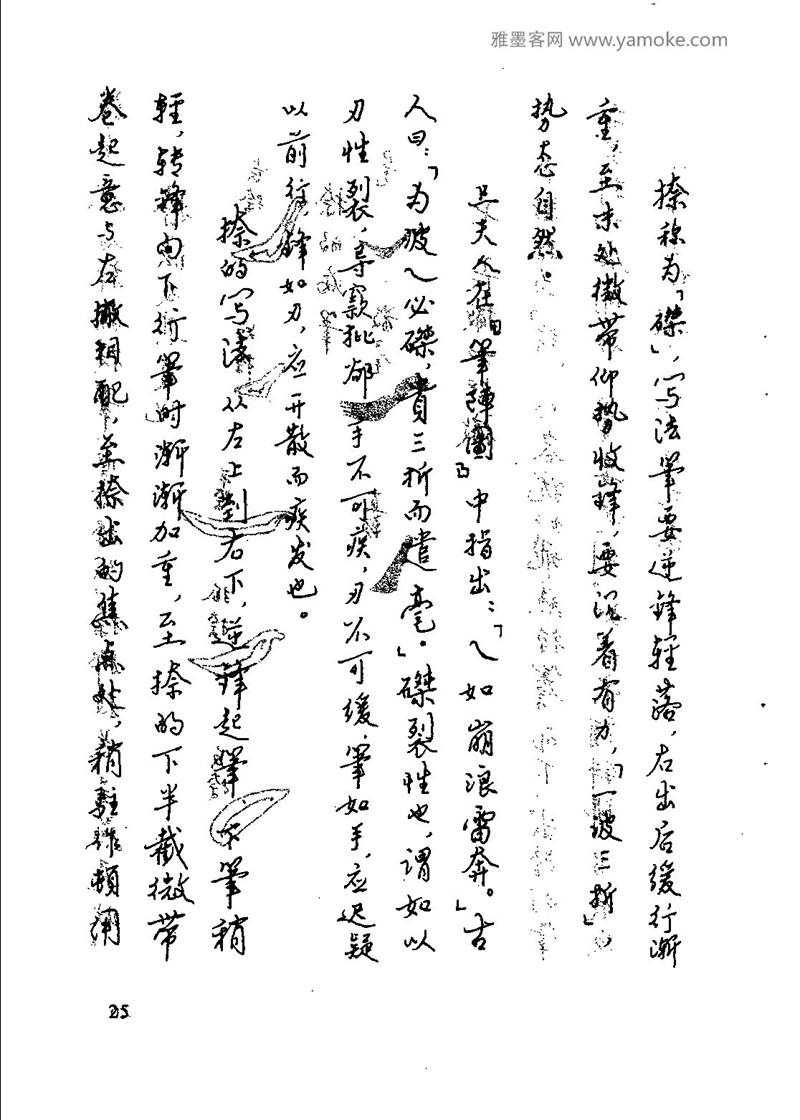 雅墨客网 www.yamoke.com
捺称为「磔」，写法笔要逆锋轻落，右出后缓行渐
重，至末处微带仰势收锋，要沉着有力，「一波三折」，
势态自然。
卫夫人在『筆陣圖』中指出：「乀如崩浪雷奔。」古
人曰：「为波乀必磔，貴三折而遣毫。」磔裂牲也，谓如以
刃牲裂，导窾批郤手不可疾，刃不可缓，筆如手，应迟疑
以前往，鋒如刃，应开散而疾发也。
捺的写法从左上到右下，逆鋒起筆，下筆稍
輕，转鋒向下行筆时渐渐加重，至捺的下半截微带
卷起意与左撇相配，至捺出的焦点处，稍駐作頓
25